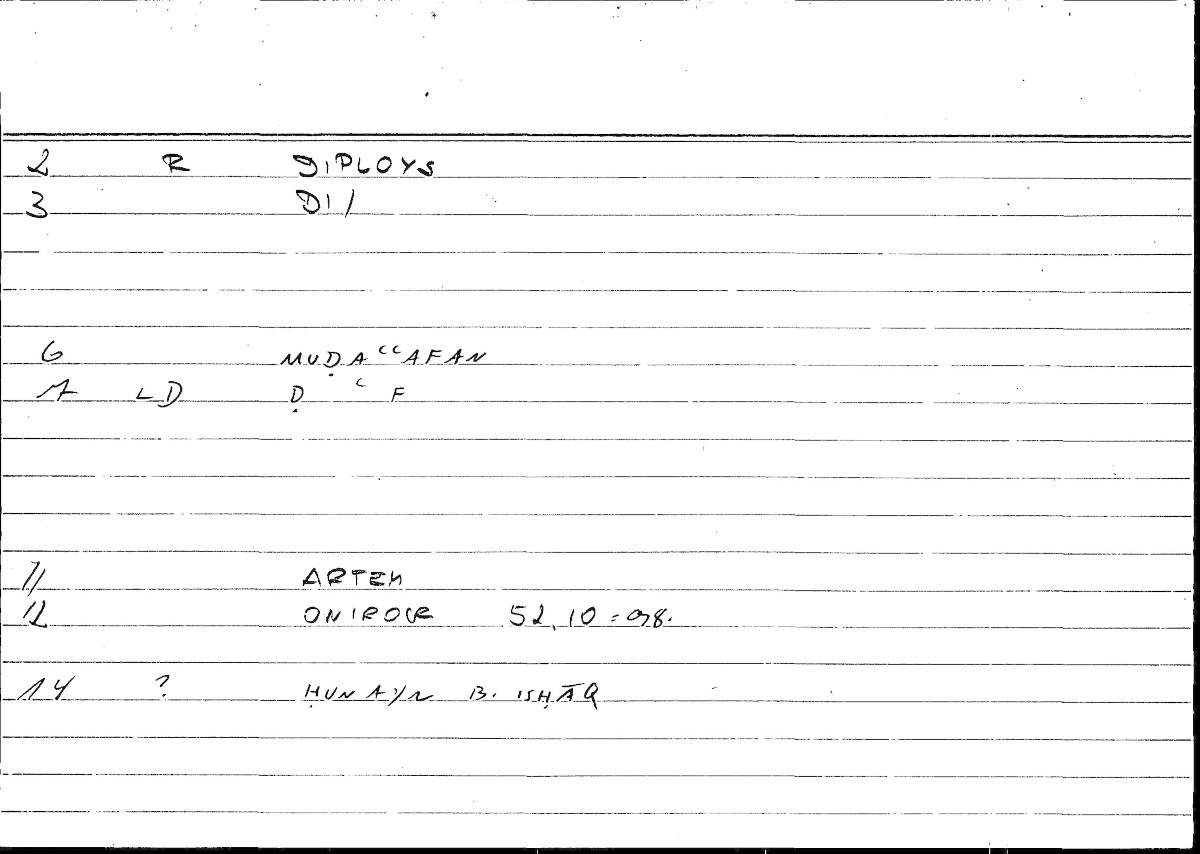 2 R DIPLOYS
3 DI/
6 MUḌAʿʿAFAN
7 LD Ḍ ʿ F
11 ARTEM
12 ONIROCR 52,10 = 98.
14 ? ḤUNAYN B. ISḤĀQ